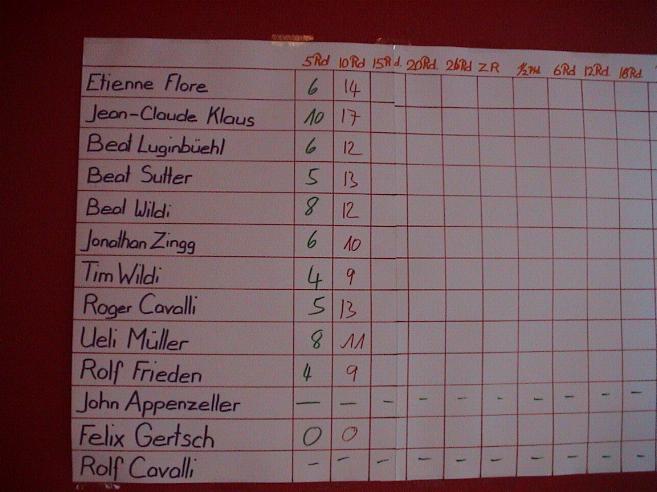 5Rd 10Rd 15Rd. 20Rd. 26Rd ZR ½Rd 6Rd 12Rd 18Rd
Etienne Flore 6 14
Jean-Claude Klaus 10 17
Beat Luginbüehl 6 12
Beat Sutter 5 13
Beat Wildi 8 12
Jonathan Zingg 6 10
Tim Wildi 4 9
Roger Cavalli 5 13
Ueli Müller 8 11
Rolf Frieden 4 9
John Appenzeller — — - - - - - - - -
Felix Gertsch 0 0
Rolf Cavalli - - - - - - - - - -